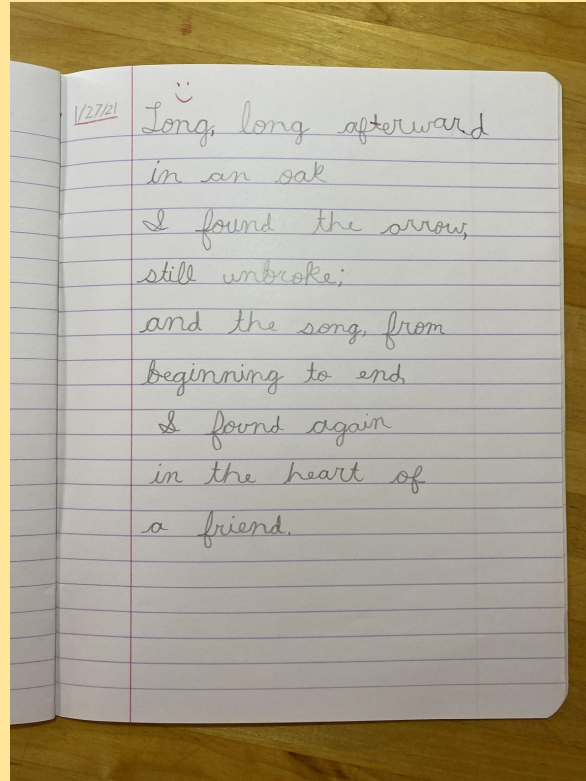 1/27/21
Long, long afterward
in an oak
I found the arrow,
still unbroke;
and the song, from
beginning to end,
I found again
in the heart of
a friend.